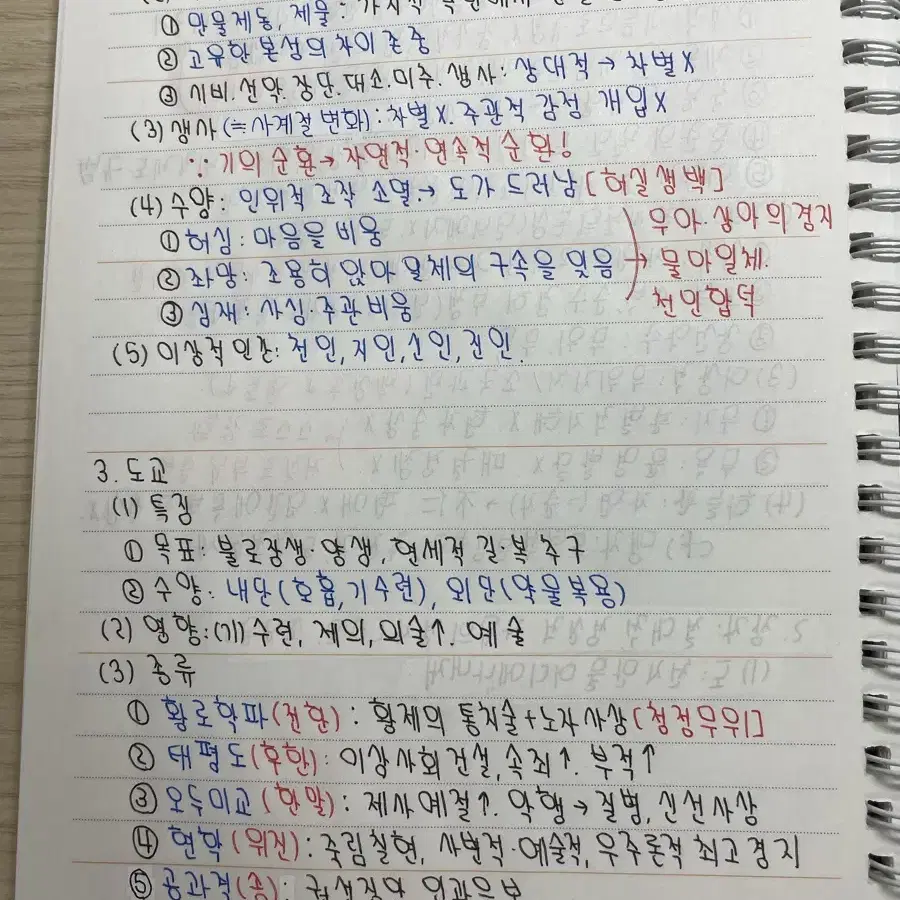 ① 만물제동, 제물 :
② 고유한 본성의 차이 존중
③ 시비·선악·장단·대소·미추·생사 : 상대적 → 차별X
(3) 생사 (≒사계절 변화) : 차별X. 주관적 감정 개입X
∵ 기의 순환 → 자연적·연속적 순환!
(4) 수양 : 인위적 조작 소멸 → 도가 드러남 [허실생백]
① 허심 : 마음을 비움
무아·상아의 경지
② 좌망 : 조용히 앉아 일체의 구속을 잊음 → 물아일체.
③ 심재 : 사심·주관 비움
천인합덕
(5) 이상적 인간 : 천인, 지인, 신인, 진인.
3. 도교
(1) 특징
① 목표 : 불로장생·양생, 현세적 길·복 추구
② 수양 : 내단(호흡, 기수련), 외단(약물복용)
(2) 영향 : (기)수련, 제의, 의술↑. 예술
(3) 종류
① 황로학파(전한) : 황제의 통치술+노자사상 [청정무위]
② 태평도(후한) : 이상사회 건설, 속죄↑. 부적↑
③ 오두미교 (한말) : 제사 예절↑. 악행 → 질병, 신선사상
④ 현학(위진) : 죽림칠현, 사변적·예술적, 우주론적 최고 경지
⑤ 공과격(송) :